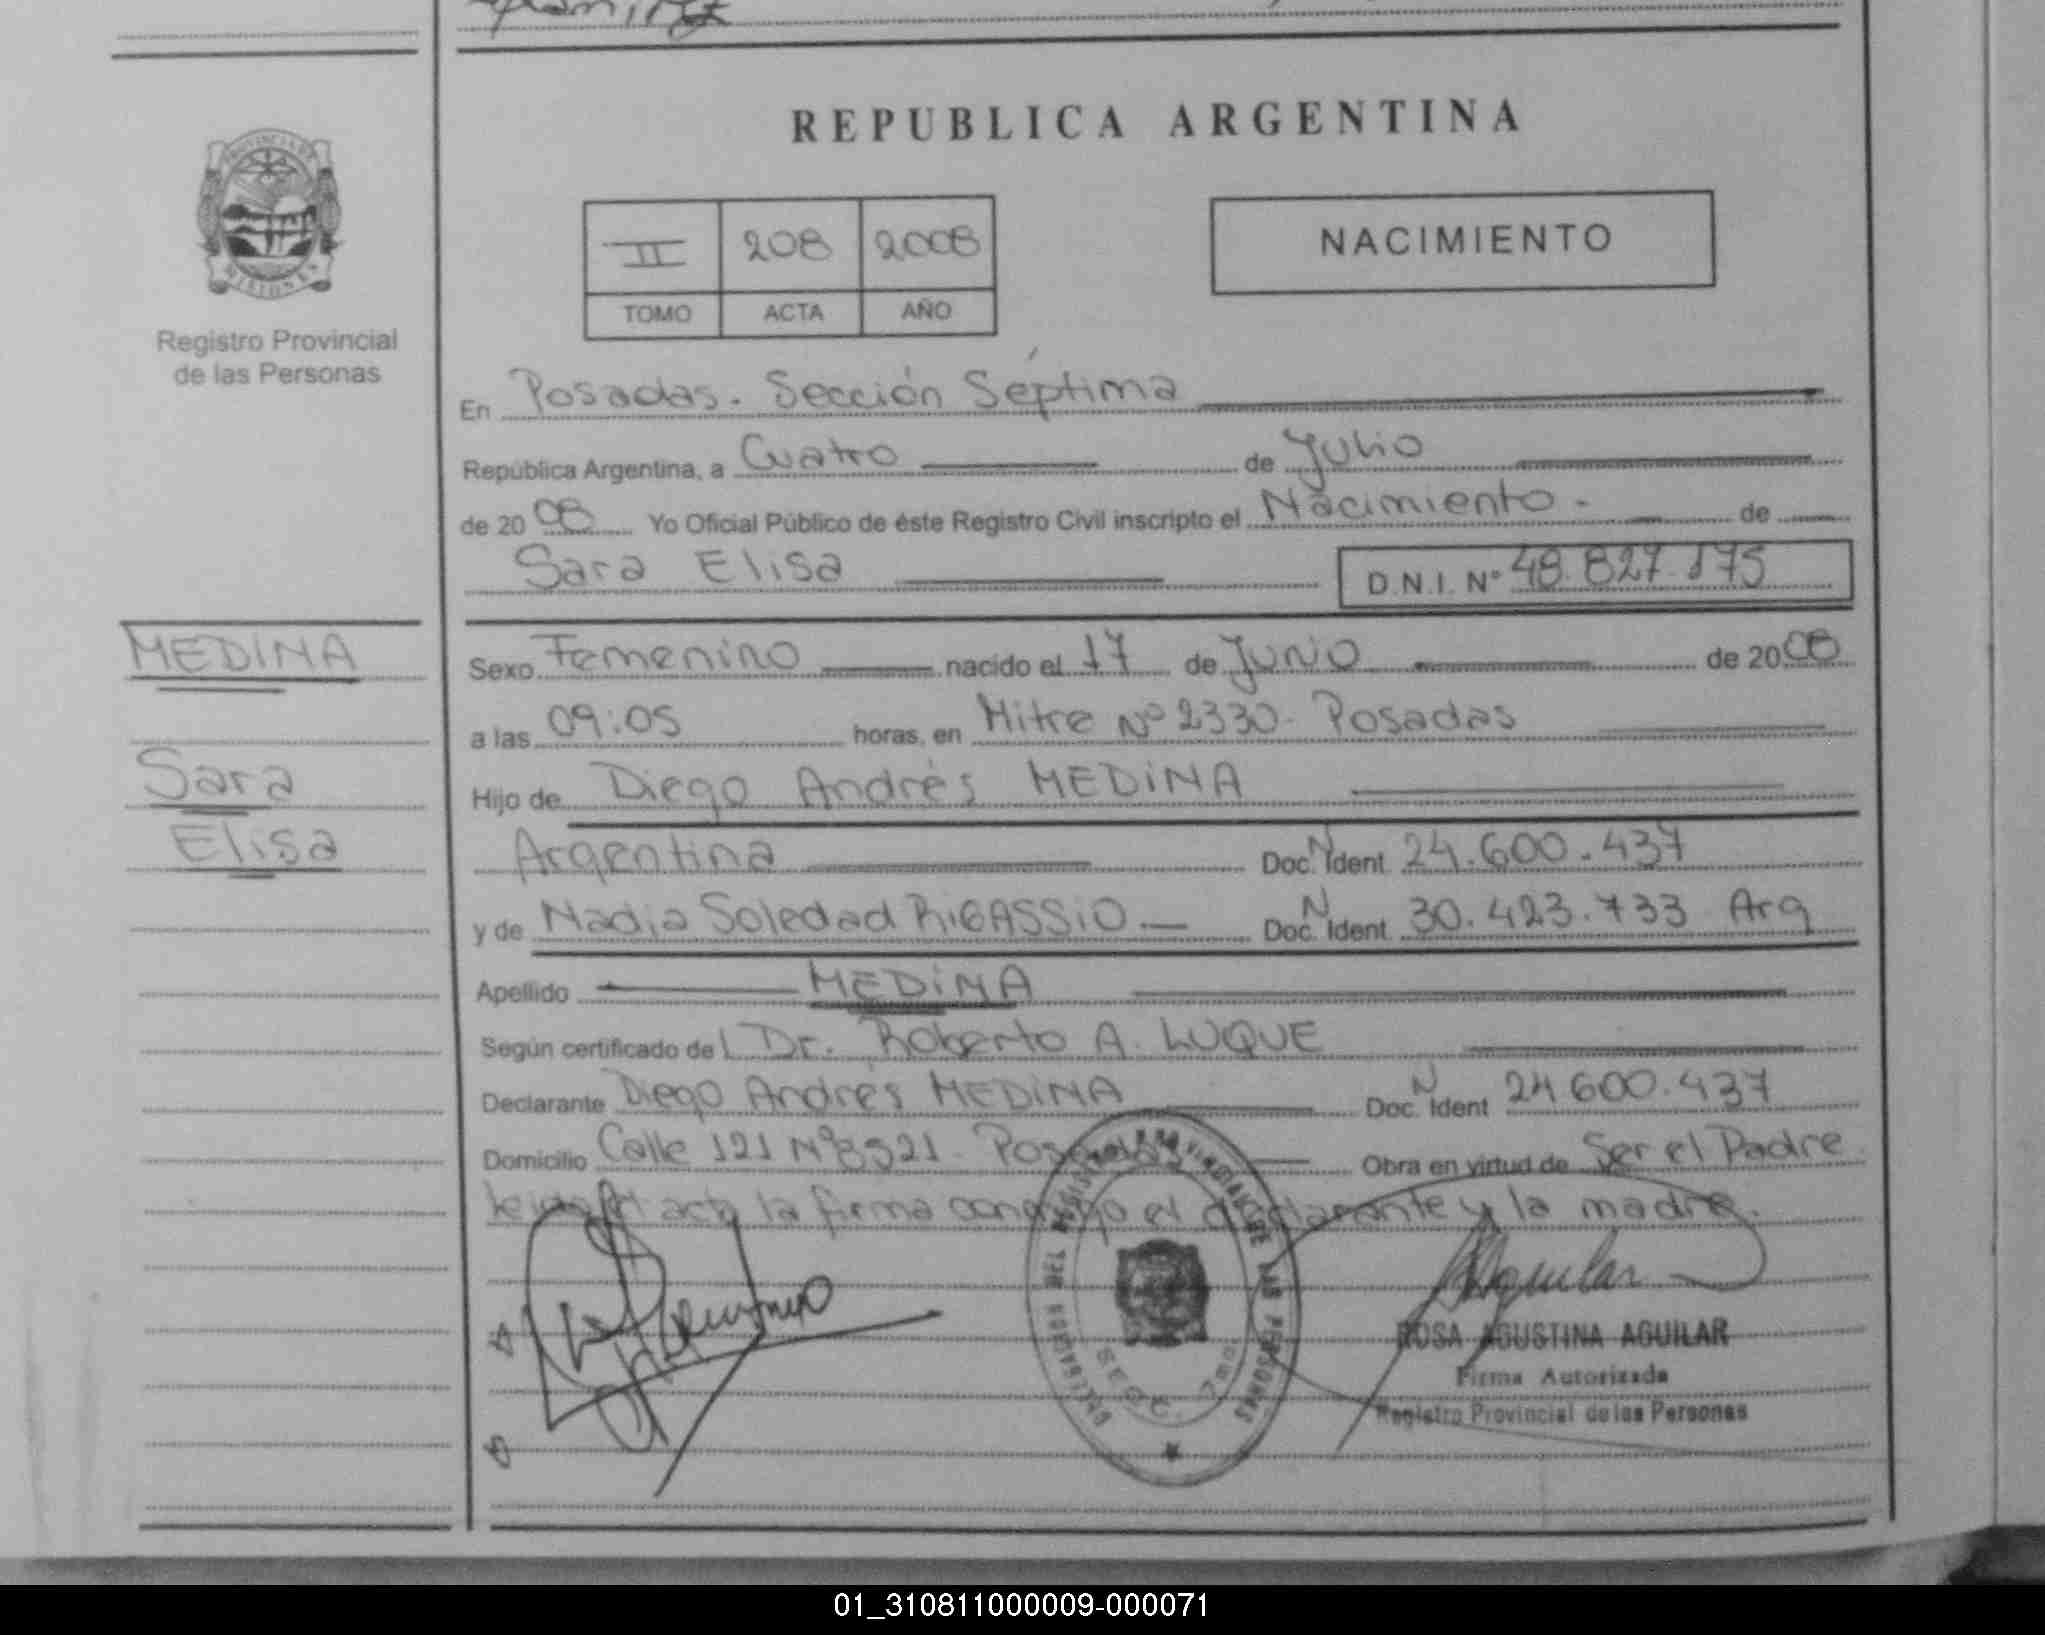 REPUBLICA ARGENTINA
PROVINCIA DE
MISIONES
Registro Provincial
de las Personas
II 208 2008
TOMO ACTA AÑO
NACIMIENTO
En Posadas. Sección Séptima
República Argentina, a Cuatro de Julio
de 20 08 Yo Oficial Público de éste Registro Civil inscripto el Nacimiento - de
Sara Elisa D.N.I. Nº 48.827.175
MEDINA
Sara
Elisa
Sexo Femenino nacido el 17 de Junio de 20 08
a las 09:05 horas, en Mitre Nº 2330 - Posadas
Hijo de Diego Andrés MEDINA
Argentina Doc. N Ident 24.600.437
y de Nadia Soledad RIGASSIO. Doc. N Ident 30.423.733 Arg
Apellido MEDINA
Según certificado del Dr. Roberto A. LUQUE
Declarante Diego Andrés MEDINA Doc. N Ident 24 600.437
Domicilio Calle 121 Nº Posadas Obra en virtud de Ser el Padre.
el acta la firma conmigo el declarante y la madre.
Aguilar
SECC. 7ma
ROSA AGUSTINA AGUILAR
Firma Autorizada
Registro Provincial de las Personas
01_310811000009-000071